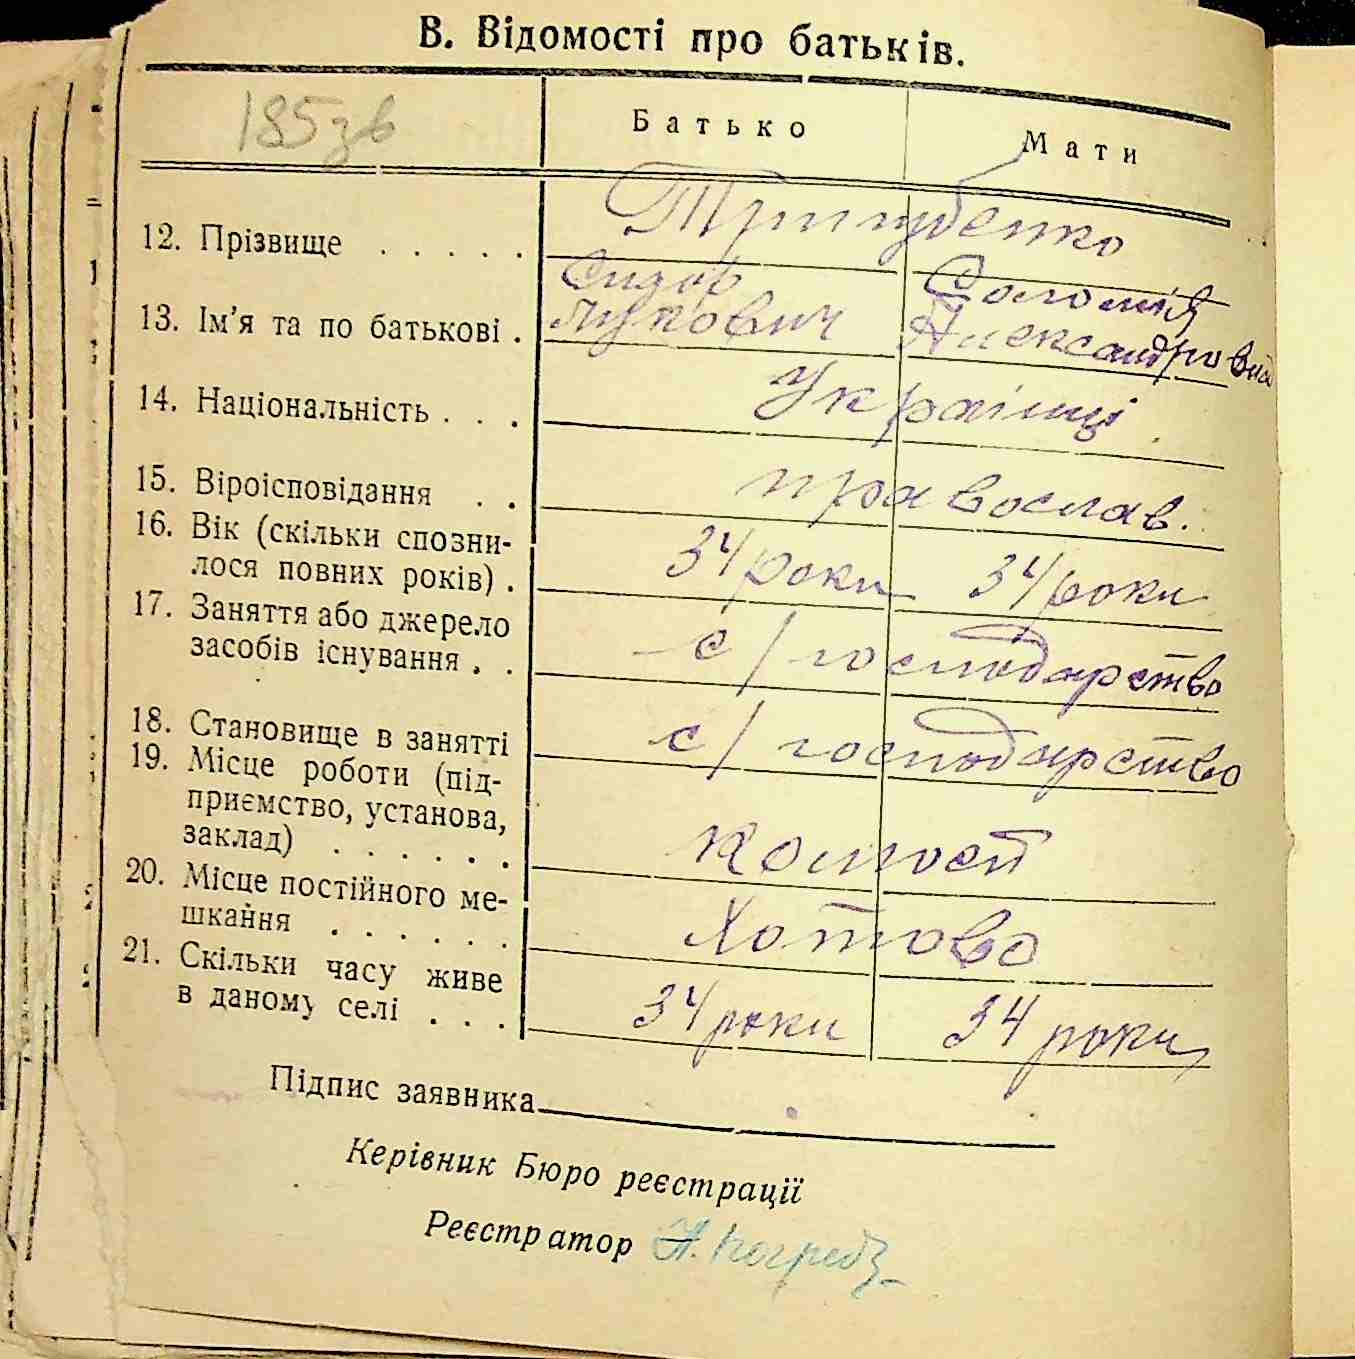 В. Відомості про батьків.
185зв
Батько Мати
12. Прізвище . . . . . Тригубенко
Сидор Соломія
13. Ім'я та по батькові . Лукович Александровна
14. Національність . . . Українці
15. Віроісповідання . . православ.
16. Вік (скільки спозни-
лося повних років) . 34 роки 34 роки
17. Заняття або джерело
засобів існування . . с/господарство
18. Становище в занятті с/господарство
19. Місце роботи (під-
приємство, установа,
заклад) . . . . . .
20. Місце постійного ме-
шкання . . . . . . Хотово
21. Скільки часу живе
в даному селі . . . 34 роки 34 роки
Підпис заявника
Керівник Бюро реєстрації
Реєстратор